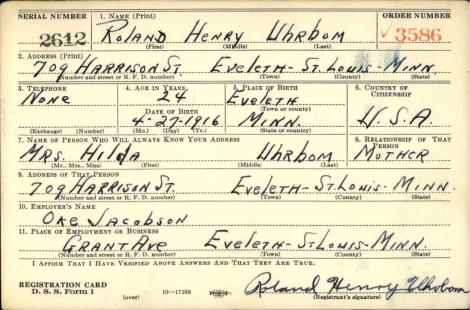 SERIAL NUMBER 1. NAME (Print) ORDER NUMBER
2612 ROLAND HENRY UHRBOM 3586
(First) (Middle) (Last)
2. ADDRESS (Print)
709 HARRISON ST. EVELETH - ST. LOUIS - MINN.
(Number and street or R. F. D. number) (Town) (County) (State)
3. TELEPHONE 4. AGE IN YEARS 5. PLACE OF BIRTH 6. COUNTRY OF CITIZENSHIP
NONE 24 EVELETH
(Town or county)
DATE OF BIRTH
4-27-1916 MINN. U.S.A.
(Exchange) (Number) (Mo.) (Day) (Yr.) (State or country)
7. NAME OF PERSON WHO WILL ALWAYS KNOW YOUR ADDRESS 8. RELATIONSHIP OF THAT PERSON
MRS. HILDA UHRBOM MOTHER
(Mr., Mrs., Miss) (First) (Middle) (Last)
9. ADDRESS OF THAT PERSON
709 HARRISON ST. EVELETH - ST. LOUIS - MINN.
(Number and street or R. F. D. number) (Town) (County) (State)
10. EMPLOYER'S NAME
OKE JACOBSON
11. PLACE OF EMPLOYMENT OR BUSINESS
GRANT AVE EVELETH - ST. LOUIS - MINN.
(Number and street or R. F. D. number) (Town) (County) (State)
I AFFIRM THAT I HAVE VERIFIED ABOVE ANSWERS AND THAT THEY ARE TRUE.
REGISTRATION CARD
D. S. S. Form 1 Roland Henry Uhrbom
(over) 16—17105 (Registrant's signature)